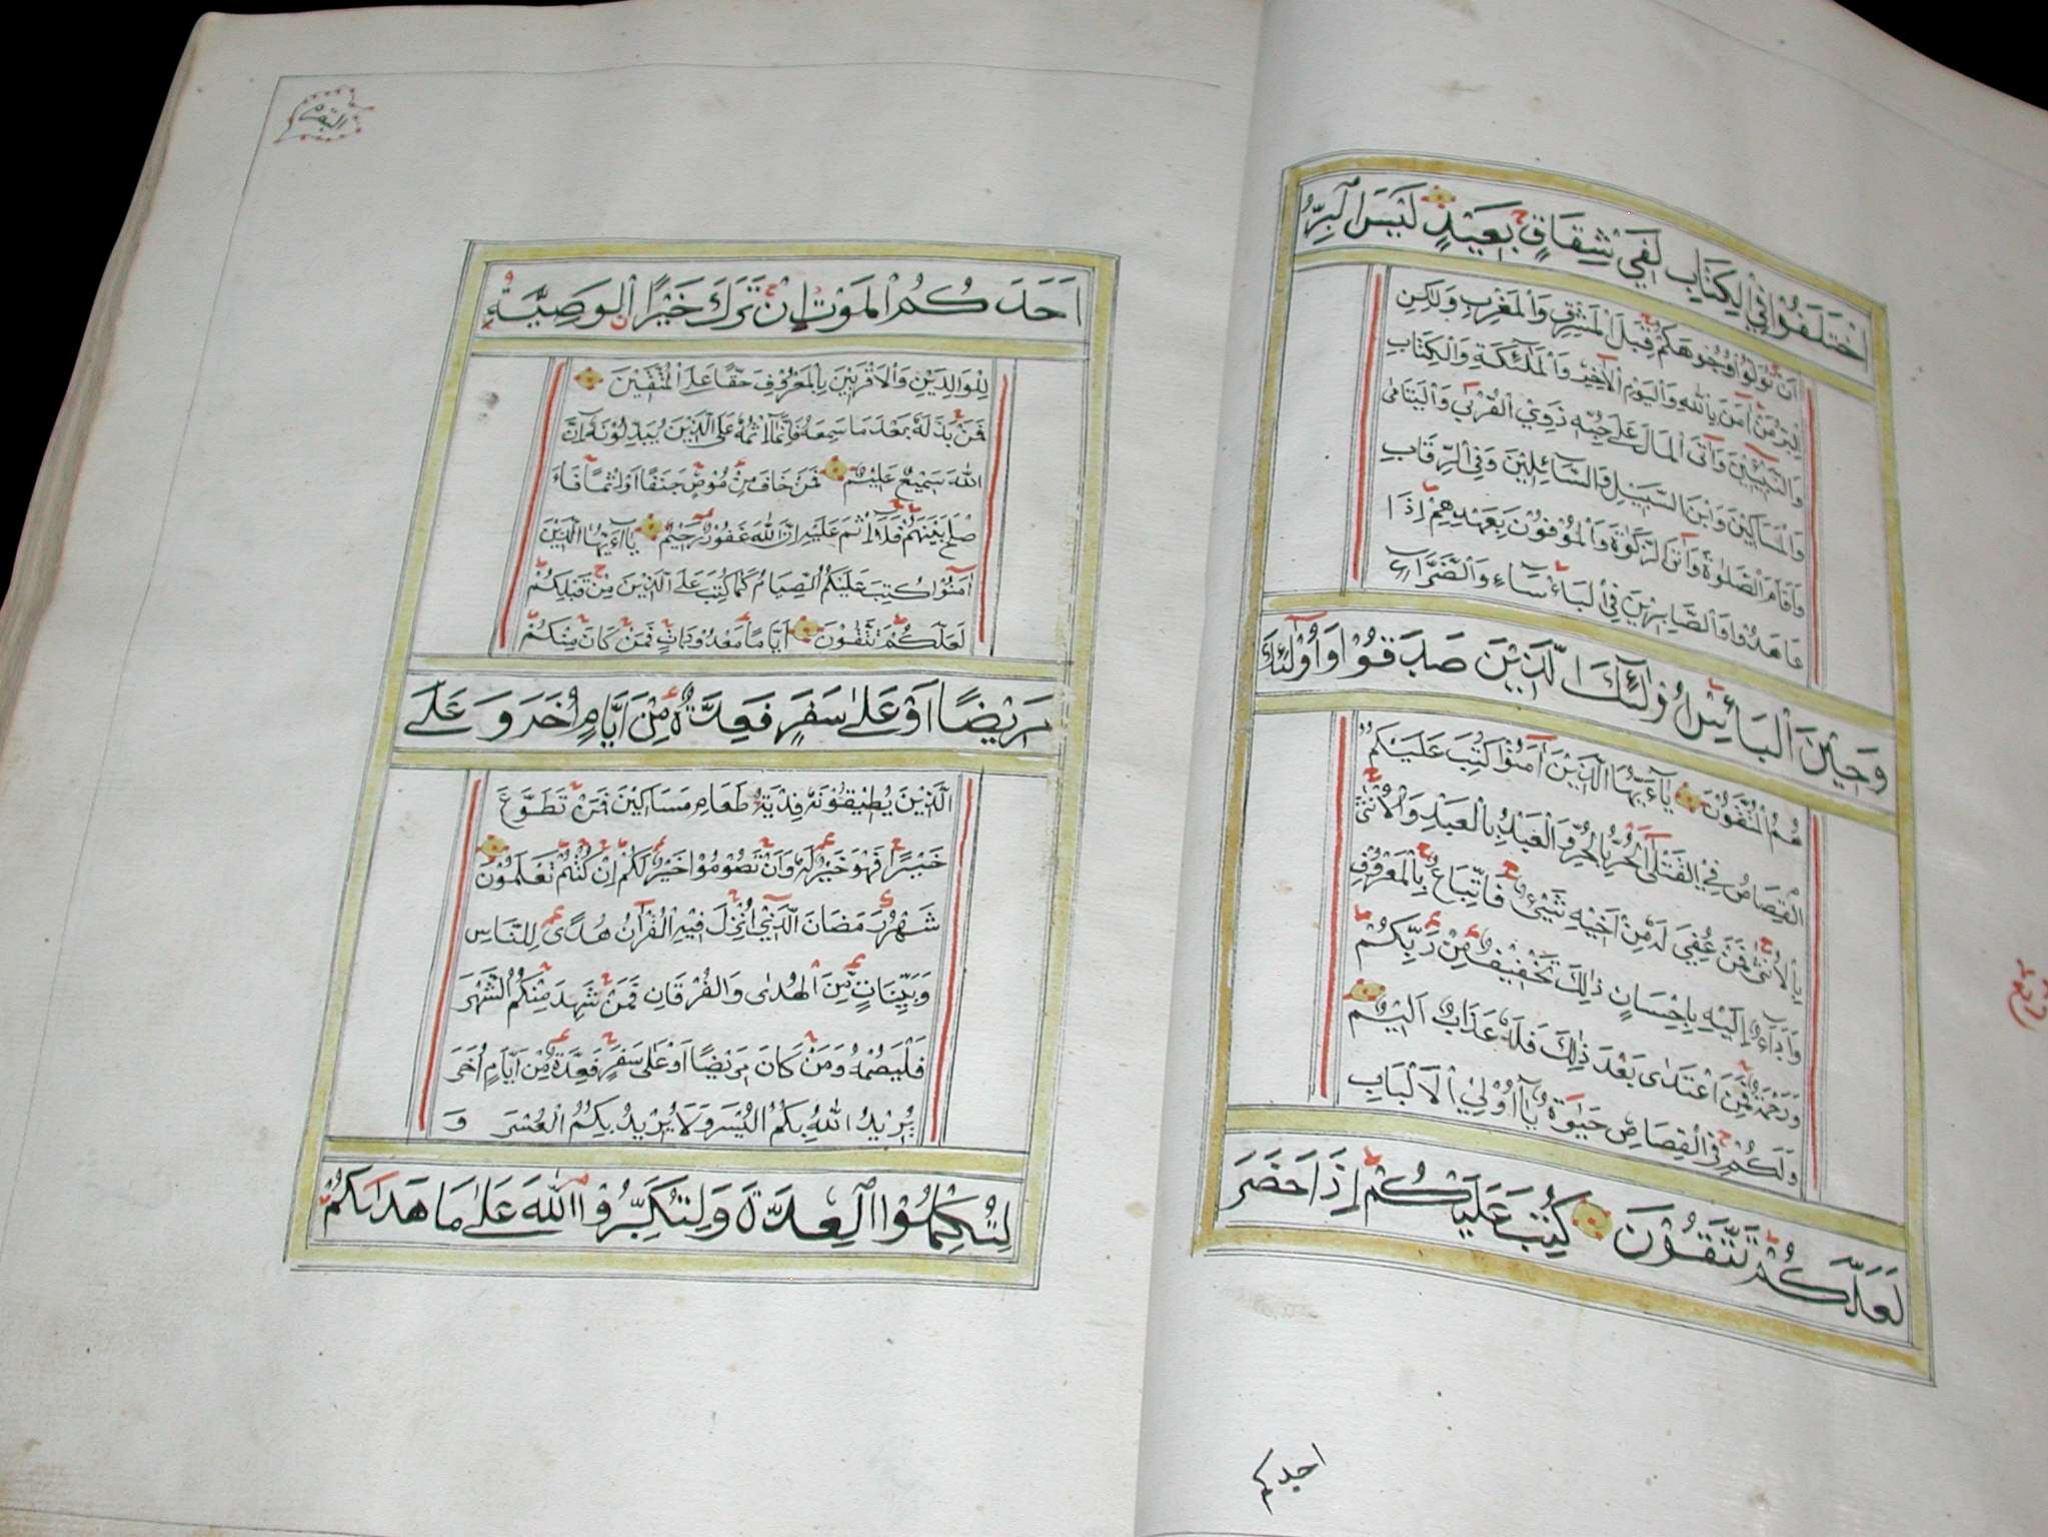 اخْتَلَفُوْا فِي الْكِتَابِ لَفِيْ شِقَاقٍ بَعِيْدٍ لَيْسَ الْبِرَّ
اَنْ تُوَلُّوْا وُجُوْهَكُمْ قِبَلَ الْمَشْرِقِ وَالْمَغْرِبِ وَلٰكِنَّ
الْبِرَّ مَنْ اٰمَنَ بِاللّٰهِ وَالْيَوْمِ الْاٰخِرِ وَالْمَلٰٓئِكَةِ وَالْكِتَابِ
وَالنَّبِيِّيْنَ وَاٰتَى الْمَالَ عَلٰى حُبِّهٖ ذَوِي الْقُرْبٰى وَالْيَتَامٰى
وَالْمَسَاكِيْنَ وَابْنَ السَّبِيْلِ وَالسَّآئِلِيْنَ وَفِي الرِّقَابِ
وَاَقَامَ الصَّلٰوةَ وَاٰتَى الزَّكٰوةَ وَالْمُوْفُوْنَ بِعَهْدِهِمْ اِذَا
عَاهَدُوْا وَالصَّابِرِيْنَ فِي الْبَأْسَاءِ وَالضَّرَّاءِ
وَحِيْنَ الْبَأْسِ اُولٰٓئِكَ الَّذِيْنَ صَدَقُوْا وَاُولٰٓئِكَ
هُمُ الْمُتَّقُوْنَ يَآاَيُّهَا الَّذِيْنَ اٰمَنُوْا كُتِبَ عَلَيْكُمُ
الْقِصَاصُ فِي الْقَتْلٰى اَلْحُرُّ بِالْحُرِّ وَالْعَبْدُ بِالْعَبْدِ وَالْاُنْثٰى
بِالْاُنْثٰى فَمَنْ عُفِيَ لَهٗ مِنْ اَخِيْهِ شَيْءٌ فَاتِّبَاعٌ بِالْمَعْرُوْفِ
وَاَدَاءٌ اِلَيْهِ بِاِحْسَانٍ ذٰلِكَ تَخْفِيْفٌ مِنْ رَبِّكُمْ
وَرَحْمَةٌ فَمَنِ اعْتَدٰى بَعْدَ ذٰلِكَ فَلَهٗ عَذَابٌ اَلِيْمٌ
وَلَكُمْ فِي الْقِصَاصِ حَيٰوةٌ يَآاُوْلِي الْاَلْبَابِ
لَعَلَّكُمْ تَتَّقُوْنَ كُتِبَ عَلَيْكُمْ اِذَا حَضَرَ
البقرة
اَحَدَكُمُ الْمَوْتُ اِنْ تَرَكَ خَيْرًا الْوَصِيَّةُ
لِلْوَالِدَيْنِ وَالْاَقْرَبِيْنَ بِالْمَعْرُوْفِ حَقًّا عَلَى الْمُتَّقِيْنَ
فَمَنْ بَدَّلَهٗ بَعْدَ مَا سَمِعَهٗ فَاِنَّمَا اِثْمُهٗ عَلَى الَّذِيْنَ يُبَدِّلُوْنَهٗ اِنَّ
اللّٰهَ سَمِيْعٌ عَلِيْمٌ فَمَنْ خَافَ مِنْ مُوْصٍ جَنَفًا اَوْ اِثْمًا فَاَ
صْلَحَ بَيْنَهُمْ فَلَا اِثْمَ عَلَيْهِ اِنَّ اللّٰهَ غَفُوْرٌ رَحِيْمٌ يَآاَيُّهَا الَّذِيْنَ
اٰمَنُوْا كُتِبَ عَلَيْكُمُ الصِّيَامُ كَمَا كُتِبَ عَلَى الَّذِيْنَ مِنْ قَبْلِكُمْ
لَعَلَّكُمْ تَتَّقُوْنَ اَيَّامًا مَعْدُوْدَاتٍ فَمَنْ كَانَ مِنْكُمْ
مَرِيْضًا اَوْ عَلٰى سَفَرٍ فَعِدَّةٌ مِنْ اَيَّامٍ اُخَرَ وَعَلَى
الَّذِيْنَ يُطِيْقُوْنَهٗ فِدْيَةُ طَعَامِ مَسَاكِيْنَ فَمَنْ تَطَوَّعَ
خَيْرًا فَهُوَ خَيْرٌ لَهٗ وَاَنْ تَصُوْمُوْا خَيْرٌ لَكُمْ اِنْ كُنْتُمْ تَعْلَمُوْنَ
شَهْرُ رَمَضَانَ الَّذِيْ اُنْزِلَ فِيْهِ الْقُرْاٰنُ هُدًى لِلنَّاسِ
وَبَيِّنَاتٍ مِنَ الْهُدٰى وَالْفُرْقَانِ فَمَنْ شَهِدَ مِنْكُمُ الشَّهْرَ
فَلْيَصُمْهُ وَمَنْ كَانَ مَرِيْضًا اَوْ عَلٰى سَفَرٍ فَعِدَّةٌ مِنْ اَيَّامٍ اُخَرَ
يُرِيْدُ اللّٰهُ بِكُمُ الْيُسْرَ وَلَا يُرِيْدُ بِكُمُ الْعُسْرَ وَ
لِتُكْمِلُوا الْعِدَّةَ وَلِتُكَبِّرُوا اللّٰهَ عَلٰى مَا هَدٰىكُمْ